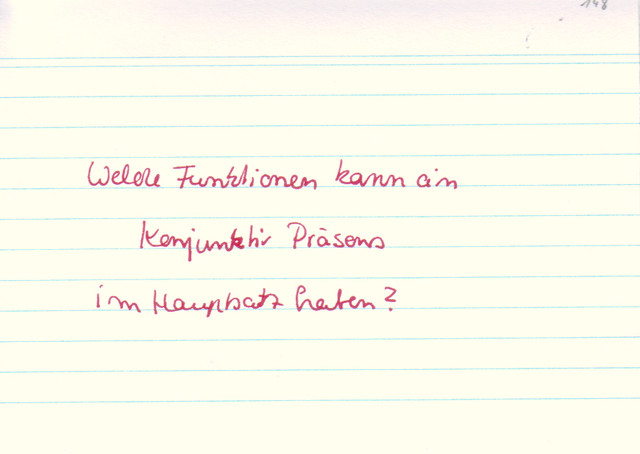 148
Welche Funktionen kann ein
Konjunktiv Präsens
im Hauptsatz haben?